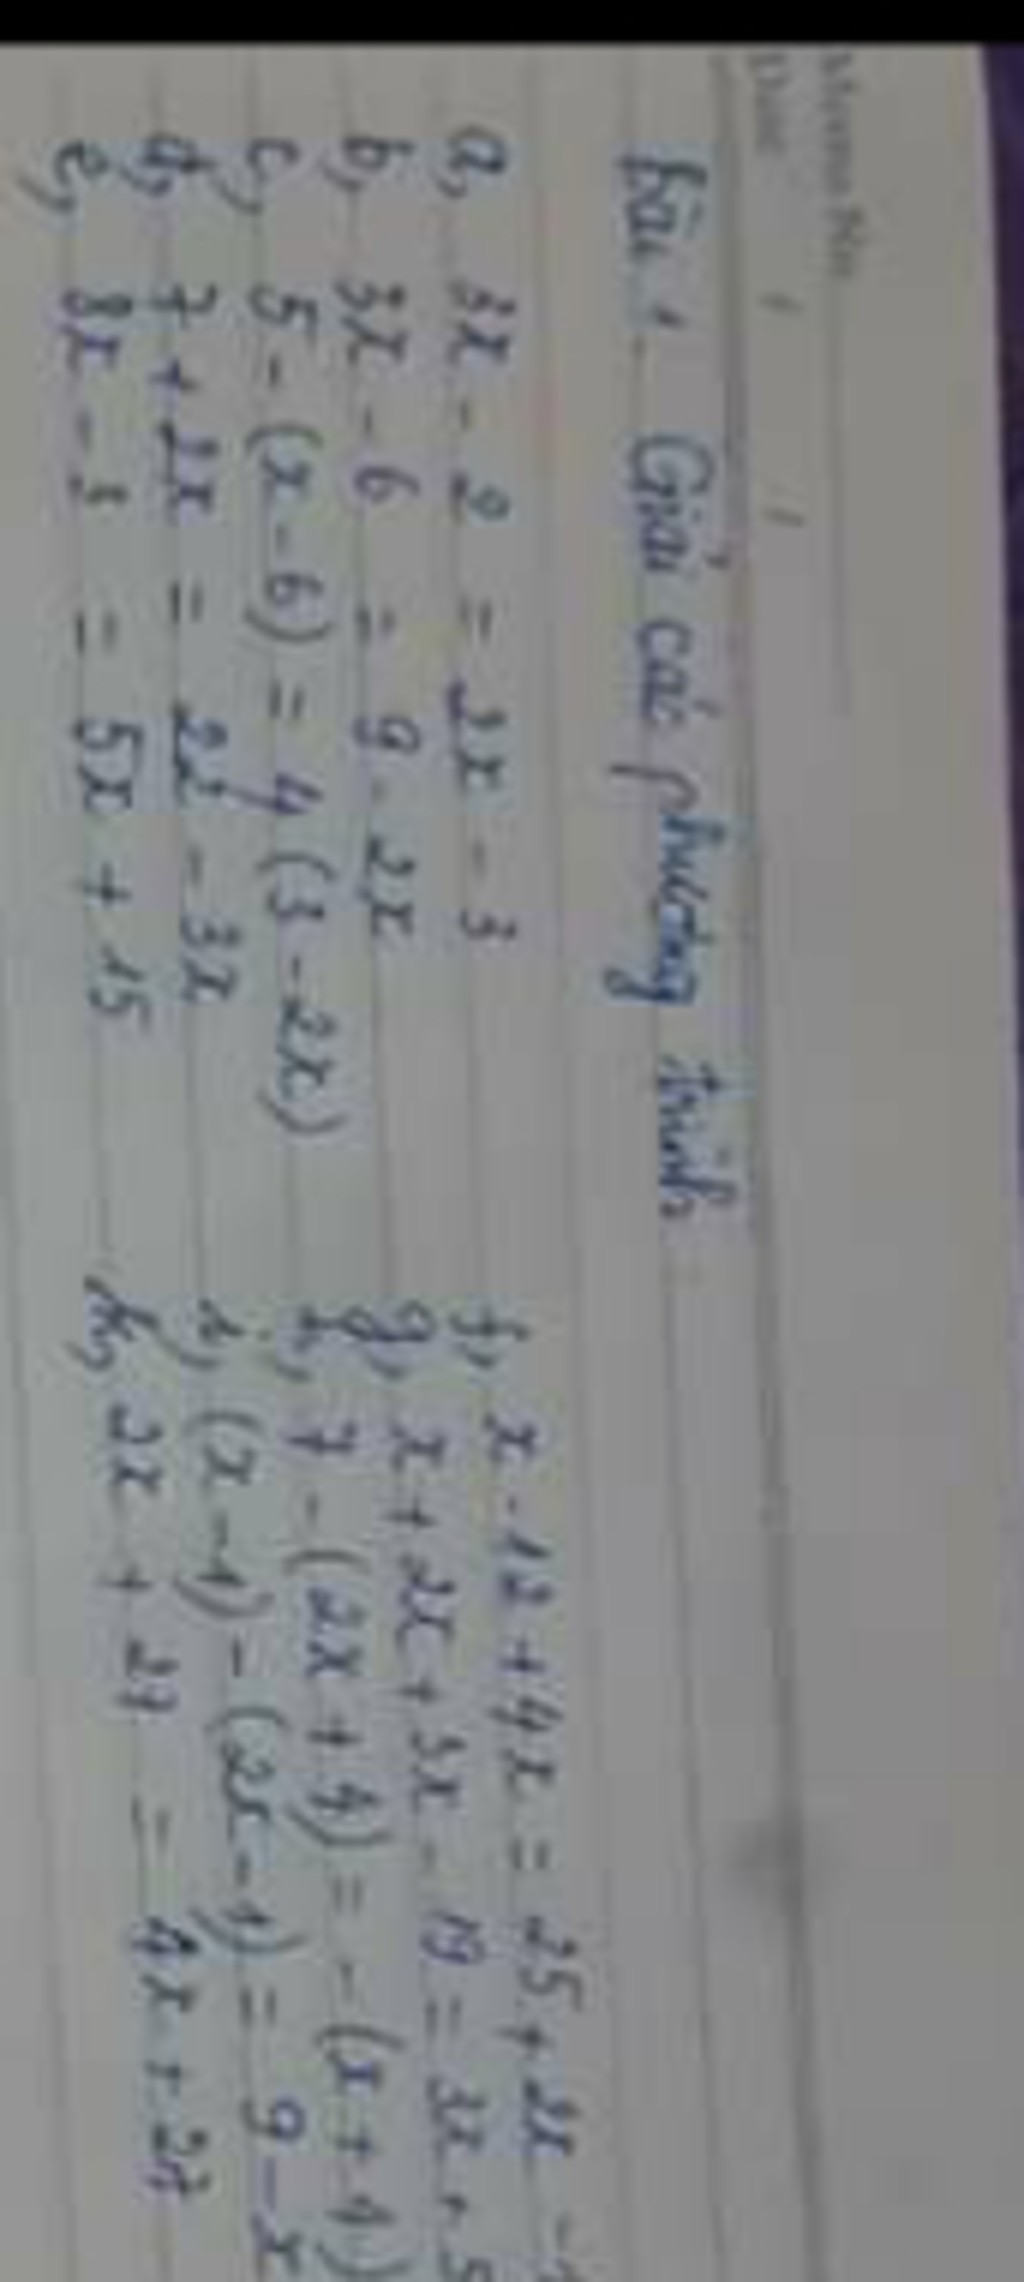 Memo No.
Date / /
Bài 1 Giải các phương trình
a, 3x - 2 = 2x - 3
b, 3x - 6 = 9 - 2x
c, 5 - (x - 6) = 4 (3 - 2x)
d, 7 + 2x = 22 - 3x
e, 8x - 3 = 5x + 15
f, x - 12 + 4x = 25 + 2x -
g, x + 2x + 3x - 19 = 3x + 5
h, 7 - (2x + 4) = - (x + 4)
i, (x - 1) - (2x - 1) = 9 - x
k, 2x + 27 = 4x + 27